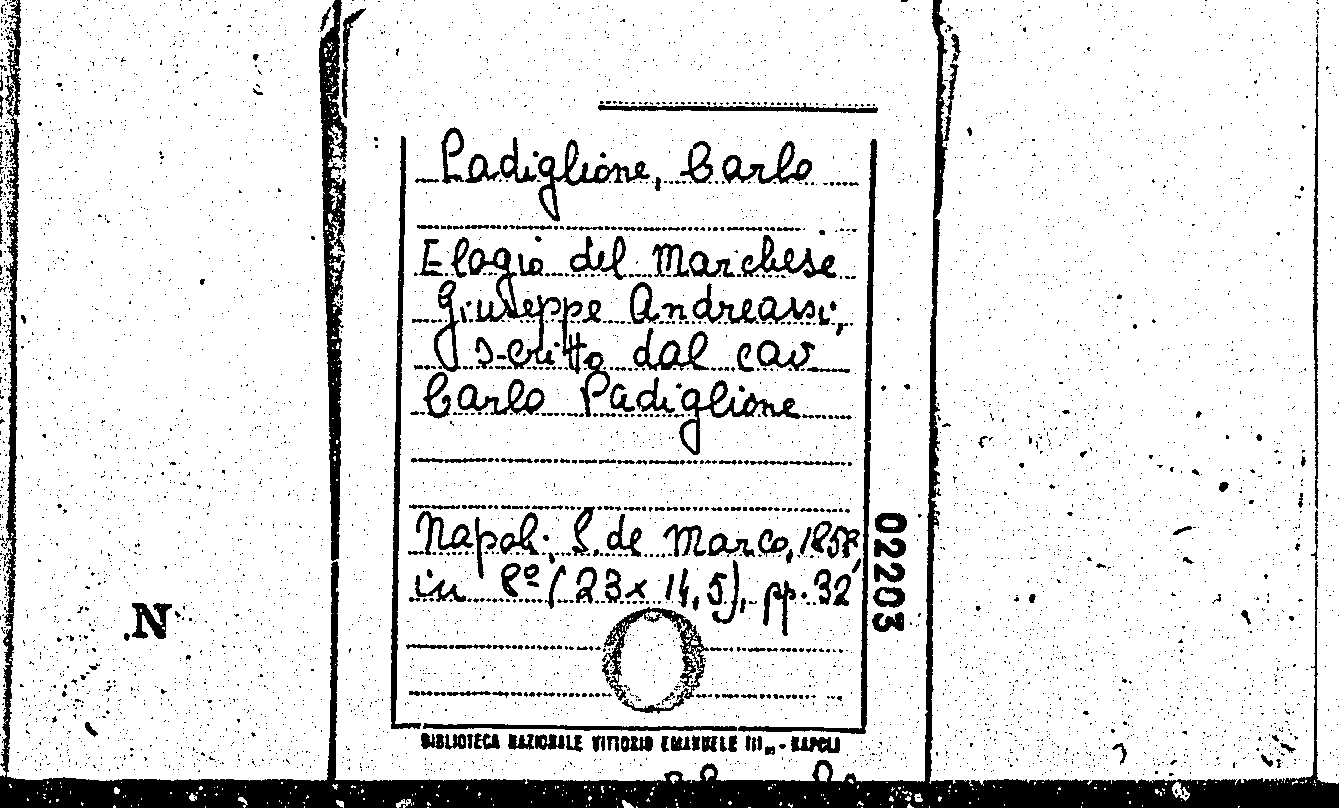 Padiglione, Carlo
Elogio del Marchese
Giuseppe Andreassi,
scritto dal cav.
Carlo Padiglione
Napoli, S. de Marco, 1858,
in 8º (23x14,5), pp. 32
02203
N
BIBLIOTECA NAZIONALE VITTORIO EMANUELE III - NAPOLI